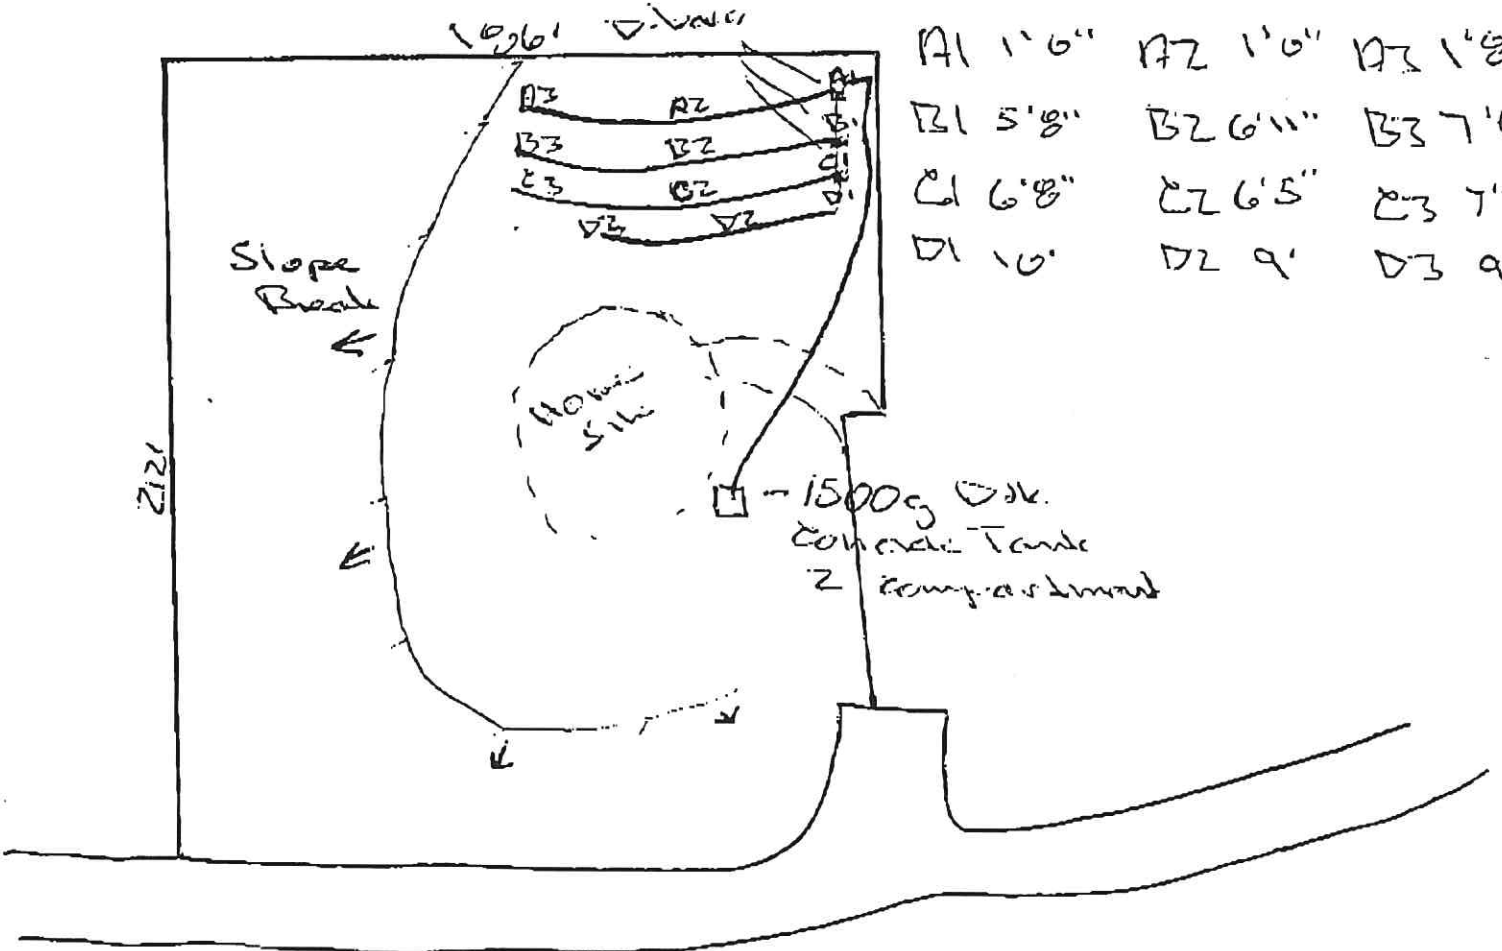 D-boxes
A1 1'0" A2 1'0" A3 1'8
B1 5'8" B2 6'11" B3 7'
C1 6'8" C2 6'5" C3 7'
D1 10' D2 9' D3 9
A3 A2 A1
B3 B2 B1
C3 C2 C1
D3 D2 D1
Slope
Break
Home
Site
212'
1500g Dbl.
Concrete Tank
2 compartment